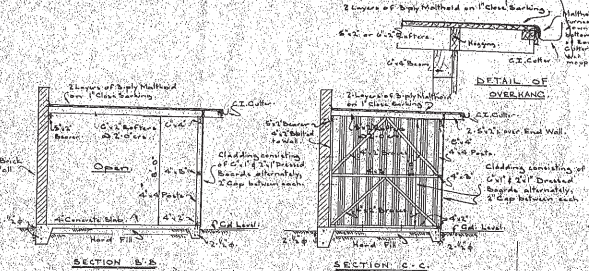 2 Layers of 3-ply Malthoid on 1" Close Sarking
Malthoid
turned
down
bottom
Gutter
5"x2" or 6"x2" Rafters
Nogging
6"x4" Beam
C.I. Gutter
DETAIL OF
OVERHANG
2 Layers of 3-ply Malthoid
on 1" Close Sarking
C.I. Gutter
5"x2"
Bearer
6"x2" Rafters
@ 2'0" crs.
6"x4"
Brick
Wall
Open
4"x3"
4"x4" Posts
Cladding consisting
of 6"x1" & 2"x1" Dressed
Boards alternately,
2" Gap between each
4" Concrete Slab
4"x2"
Gd. Level
Hard Fill
2-½ φ
SECTION B-B
2-Layers of 3-ply Malthoid
on 1" Close Sarking
C.I. Gutter
5"x2" Bearer
4"x2" Bolted
to Wall
2-5"x2"s over End Wall
6"x4"
4"x4 Posts
4"x3"
Cladding consisting of
6"x1" & 2"x1" Dressed
Boards alternately,
2" Gap between each
4"x2" Braces
4"x2"
Gd. Level
Hard Fill
2-½ φ
SECTION C-C